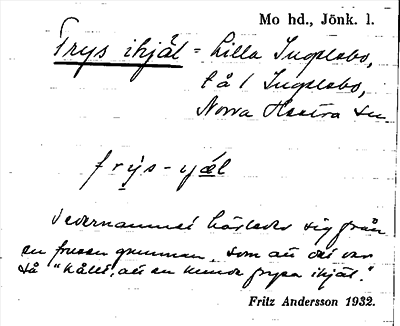 Mo hd., Jönk. l.
Frys ihjäl = Lilla Ingelsbo,
på Ingelsbo,
Norra Hestra sn.
frys-ijæl
Vedernamnet härledes sig från
en frusen gumman, som att det var
så "kallt, att en kunde frysa ihjäl".
Fritz Andersson 1932.